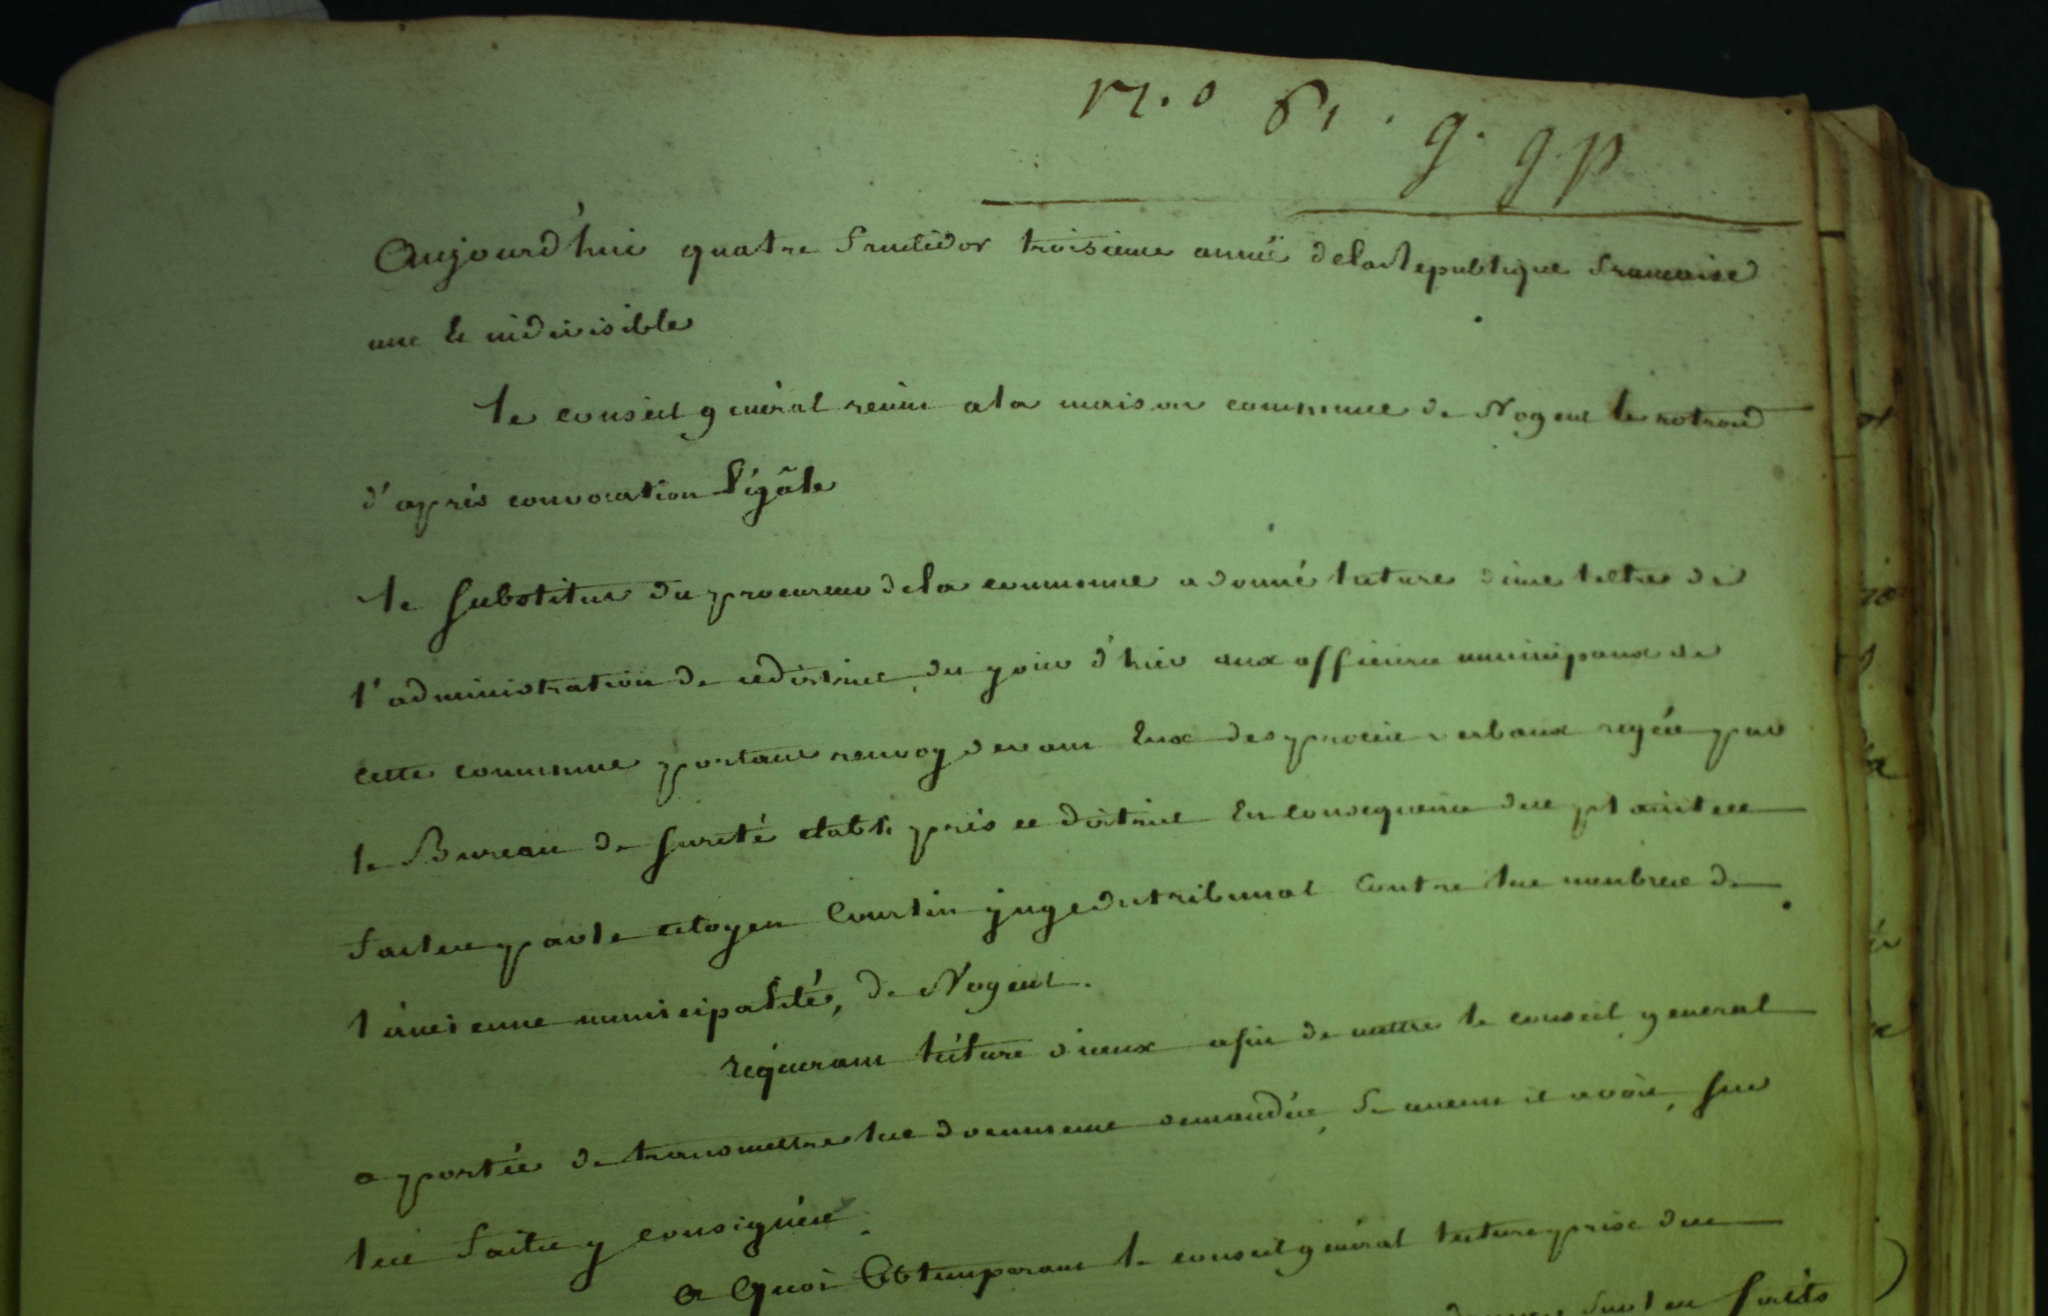 Aujourd'hui quatre fructidor troisieme année de la Republique francaise
une et indivisible
le conseil général reuni a la maison commune de Nogent le rotrou
d'après convocation légâle
le substitut du procureur de la commune a donné lecture d'une lettre de
l'administration de ce district du jour d'hier aux officiers municipaux de
cette commune portant renvoy devant eux des procès verbaux par
le Bureau de sureté etabli près ce district en consequence des plaintes
faites par le citoyen Courtin juge du tribunal contre les membres de
l'ancienne municipalité, de Nogent.
réquerant lécture d'iceux afin de mettre le conseil general
a portée de transmettre les documens demandés, si aucuns il avoit, sur
les faits y consignés.
a Quoi Obtemperant le conseil général lecture prise des
faits